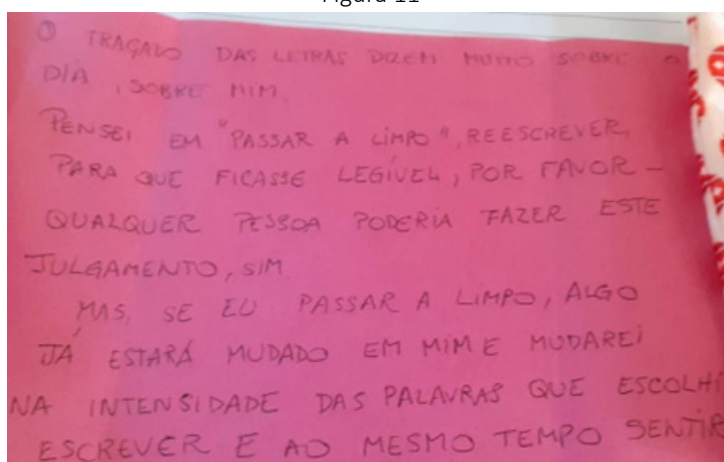 O TRAÇADO DAS LETRAS DIZEM MUITO SOBRE O
DIA, SOBRE MIM.
PENSEI EM "PASSAR A LIMPO", REESCREVER,
PARA QUE FICASSE LEGÍVEL, POR FAVOR –
QUALQUER PESSOA PODERIA FAZER ESTE
JULGAMENTO, SIM.
MAS, SE EU PASSAR A LIMPO, ALGO
JÁ ESTARÁ MUDADO EM MIM E MUDAREI
NA INTENSIDADE DAS PALAVRAS QUE ESCOLHI
ESCREVER E AO MESMO TEMPO SENTIR